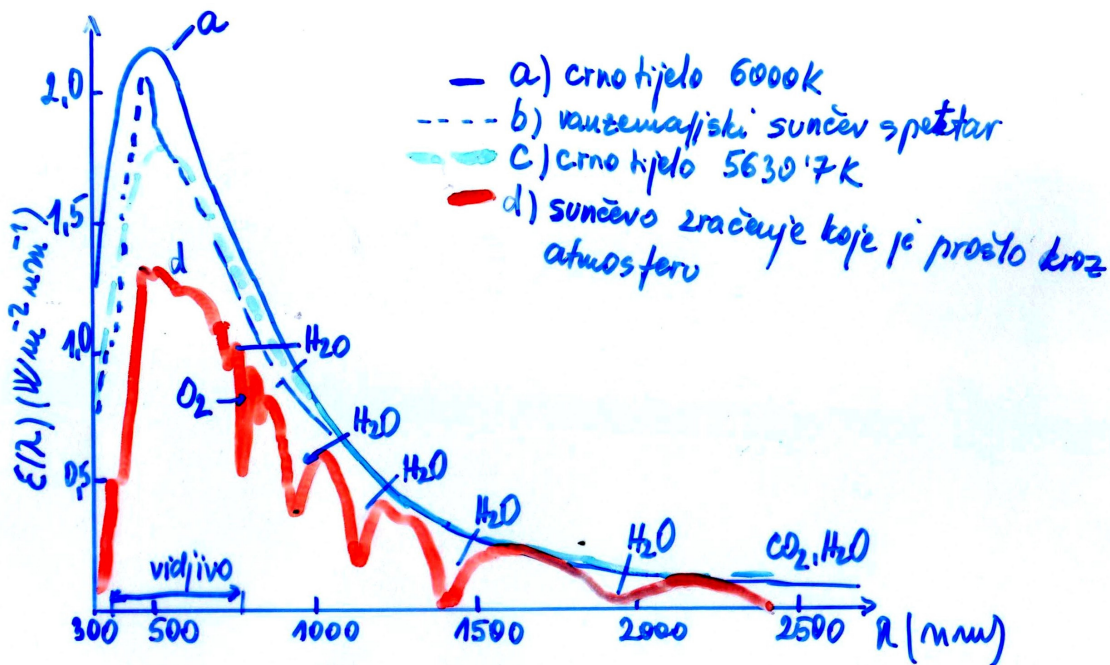 a
a) crno tijelo 6000K
b) vanzemaljski sunčev spektar
c) crno tijelo 5630'7K
d) sunčevo zračenje koje je prošlo kroz
atmosferu
2,0
1,5
1,0
0,5
E(λ) (W m⁻² nm⁻¹)
d
H2O
O2
H2O
H2O
H2O
H2O
CO2, H2O
vidjivo
300 500 1000 1500 2000 2500 λ (nm)